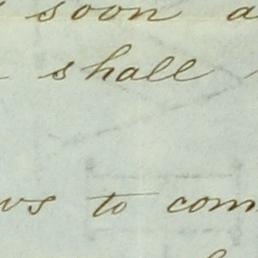 soon a
shall
ws to com